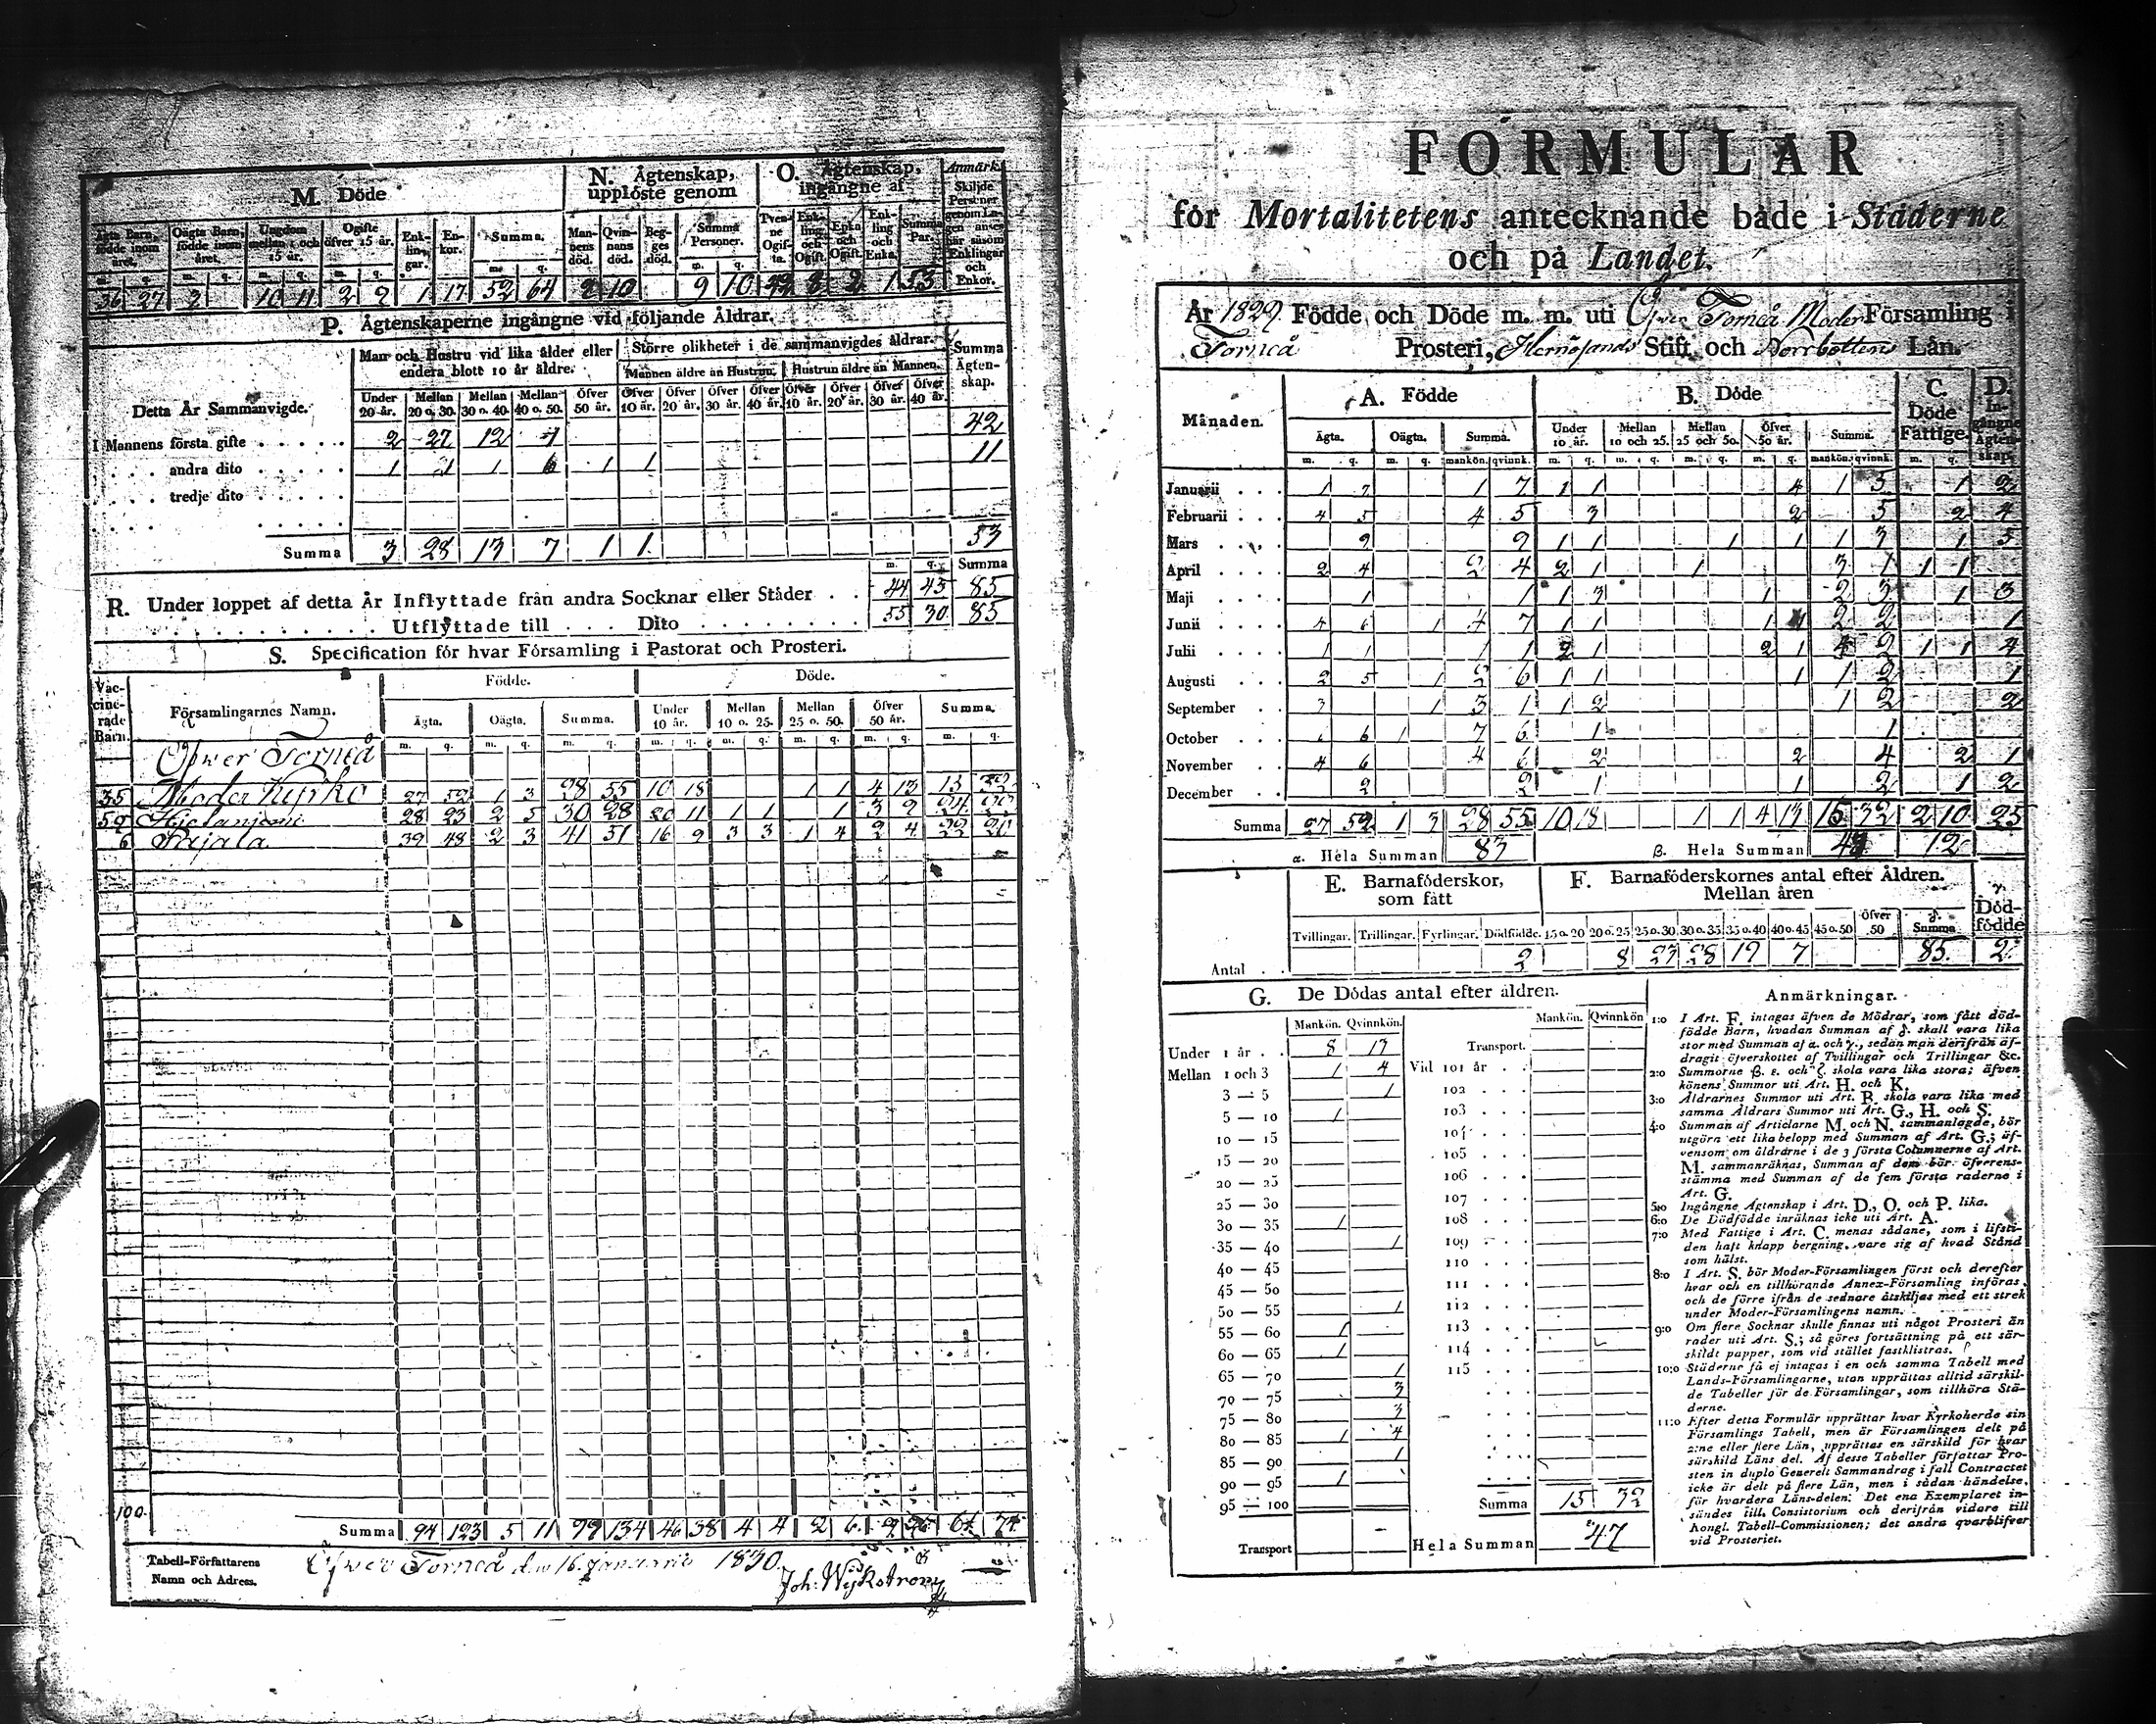 M. Döde
N. Ägtenskap, upplöste genom
O. Ägtenskap, ingångne af
Anmärk.
Ägta Barn, födde inom året.
Oägta Barn, födde inom året.
Ungdom mellan 1 och 15 år.
Ogifte öfver 15 år.
Enk-lin-gar.
En-kor.
Summa.
Man-nens död.
Qvin-nans död.
Beg-ges död.
Summa Personer.
Tven-ne Ogif-ta.
Enk-ling och Ogift.
Enka och Ogift.
Enk-ling och Enka.
Summa Par.
Skiljde Personer
Enklingar och Enkor.
36 27 2 10 11 2 2 1 17 52 64 10 9 10 2 1 53
P. Ägtenskaperne ingångne vid följande Åldrar.
Man och Hustru vid lika ålder eller endera blott 10 år äldre.
Större olikheter i de sammanvigdes åldrar.
Summa Ägten-skap.
Mannen äldre än Hustrun.
Hustrun äldre än Mannen.
Detta År Sammanvigde.
Under 20 år.
Mellan 20 o. 30.
Mellan 30 o. 40.
Mellan 40 o. 50.
Öfver 50 år.
Öfver 10 år.
Öfver 20 år.
Öfver 30 år.
Öfver 40 år.
Öfver 10 år.
Öfver 20 år.
Öfver 30 år.
Öfver 40 år.
I Mannens första gifte . . . . . 2 27 12 1 42
. . . . andra dito . . . . . 1 1 1 6 1 1 11
. . . . tredje dito . . . . .
Summa 3 28 13 7 1 1 53
m. q. Summa
R. Under loppet af detta År Inflyttade från andra Socknar eller Städer . . 85
Utflyttade till . . . Dito . . . . . . . . 55 30 85
S. Specification för hvar Församling i Pastorat och Prosteri.
Vac-cine-rade Barn.
Församlingarnes Namn.
Födde.
Döde.
Ägta.
Oägta.
Summa.
Under 10 år.
Mellan 10 o. 25.
Mellan 25 o. 50.
Öfver 50 år.
Summa.
m. q. m. q. m. q. m. q. m. q. m. q. m. q. m. q.
Öfwer Torneå
35 Moder Kyrko 27 52 1 3 28 55 10 18 1 1 4 13 15 32
59 Hietaniemi 28 23 2 5 30 28 20 11 1 1 1
6 Pajala 39 48 2 3 41 51 16 9 3 3 1 4 2 4 22 20
100.
Summa 94 123 5 11 99 134 46 38 4 4 2 6
Tabell-Författarens Namn och Adress.
Öfwer Torneå den 16. Januarii 1830.
Joh: Wijkström
FORMULÄR
för Mortalitetens antecknande både i Städerne
och på Landet.
År 1829 Födde och Döde m. m. uti Öfver Torneå Moder Församling i
Torneå Prosteri, Hernösands Stift och Norrbottens Län.
Månaden.
A. Födde
B. Döde
C. Döde Fattige.
D. In-gångne Ägten-skap.
Ägta.
Oägta.
Summa.
Under 10 år.
Mellan 10 och 25.
Mellan 25 och 50.
Öfver 50 år.
Summa.
m. q. m. q. mankön. qvinnk. m. q. m. q. m. q. m. q. mankön. qvinnk. m. q.
Januarii . . . 1 7 1 7 1 1 4 1 5 1 2
Februarii . . . 4 5 4 5 3 2 5 2 4
Mars . . . . 9 9 1 1 1 1 1 3 1 5
April . . . . 2 4 2 4 2 1 1 3 1 1 1
Maji . . . . 1 1 1 3 1 2 3 1 3
Junii . . . . 4 6 1 4 7 1 1 1 1 2 2 1
Julii . . . . 1 1 1 1 2 1 2 1 4 2 1 1 4
Augusti . . . 2 5 1 2 6 1 1 1 1 2 1
September . . . 3 1 3 1 1 2 1 2 2
October . . . 6 6 1 7 6 1 1
November . . 4 6 4 6 2 2 4 2 1
December . . 2 2 1 1 2 1 2
Summa 27 52 1 3 28 55 10 18 1 1 4 13 15 32 2 10 25
α. Hela Summan 83
β. Hela Summan 47 12
E. Barnaföderskor, som fått
F. Barnaföderskornes antal efter Åldren. Mellan åren
γ. Död-födde
Tvillingar. Trillingar. Fyrlingar. Dödfödde. 15 o. 20 20 o. 25 25 o. 30 30 o. 35 35 o. 40 40 o. 45 45 o. 50 Öfver 50 δ. Summa
Antal . . 2 8 23 28 19 7 85. 2.
G. De Dödas antal efter åldren.
Mankön. Qvinnkön.
Under 1 år . . 8 13
Mellan 1 och 3 1 4
3 — 5 1
5 — 10 1
10 — 15
15 — 20
20 — 25
25 — 30
30 — 35 1
35 — 40 1
40 — 45
45 — 50
50 — 55 1
55 — 60 1
60 — 65 1
65 — 70 1
70 — 75 3
75 — 80 3
80 — 85 1 4
85 — 90 1
90 — 95 1
95 — 100
Transport
Mankön. Qvinnkön
Transport.
Vid 101 år . .
102 . . .
103 . . .
104 . . .
105 . . .
106 . . .
107 . . .
108 . . .
109 . . .
110 . . .
111 . . .
112 . . .
113 . . .
114 . . .
115 . . .
Summa 15 32
Hela Summan 47
Anmärkningar.
1:o I Art. F. intagas äfven de Mödrar, som fått död-
födde Barn, hvadan Summan af δ. skall vara lika
stor med Summan af α. och γ., sedan man derifrån äf-
dragit öfverskottet af Tvillingar och Trillingar &c.
2:o Summorne β. ε. och ζ. skola vara lika stora; äfven
könens Summor uti Art. H. och K.
3:o Åldrarnes Summor uti Art. B. skola vara lika med
samma Åldrars Summor uti Art. G., H. och S.
4:o Summan af Articlarne M. och N. sammanlagde, bör
utgöra ett lika belopp med Summan af Art. G.; äf-
vensom om åldrarne i de 3 första Columnerne af Art.
M. sammanräknas, Summan af dem bör öfverens-
stämma med Summan af de fem första raderne i
Art. G.
5:o Ingångne Ägtenskap i Art. D., O. och P. lika.
6:o De Dödfödde inräknas icke uti Art. A.
7:o Med Fattige i Art. C. menas sådane, som i lifsti-
den haft knapp bergning, vare sig af hvad Stånd
som hälst.
8:o I Art. S. bör Moder-Församlingen först och derefter
hvar och en tillhörande Annex-Församling införas,
och de förre ifrån de sednare åtskiljas med ett strek
under Moder-Församlingens namn.
9:o Om flere Socknar skulle finnas uti något Prosteri än
rader uti Art. S.; så göres fortsättning på ett sär-
skildt papper, som vid stället fastklistras.
10:o Städerne få ej intagas i en och samma Tabell med
Lands-Församlingarne, utan upprättas alltid särskil-
de Tabeller för de Församlingar, som tillhöra Stä-
derne.
11:o Efter detta Formulär upprättar hvar Kyrkoherde sin
Församlings Tabell, men är Församlingen delt på
2:ne eller flere Län, upprättas en särskild för hvar
särskild Läns del. Af desse Tabeller författar Pro-
sten in duplo Generelt Sammandrag i fall Contractet
icke är delt på flere Län, men i sådan händelse,
för hvardera Läns-delen: Det ena Exemplaret in-
sändes till Consistorium och derifrån vidare till
Kongl. Tabell-Commissionen; det andra qvarblifver
vid Prosteriet.